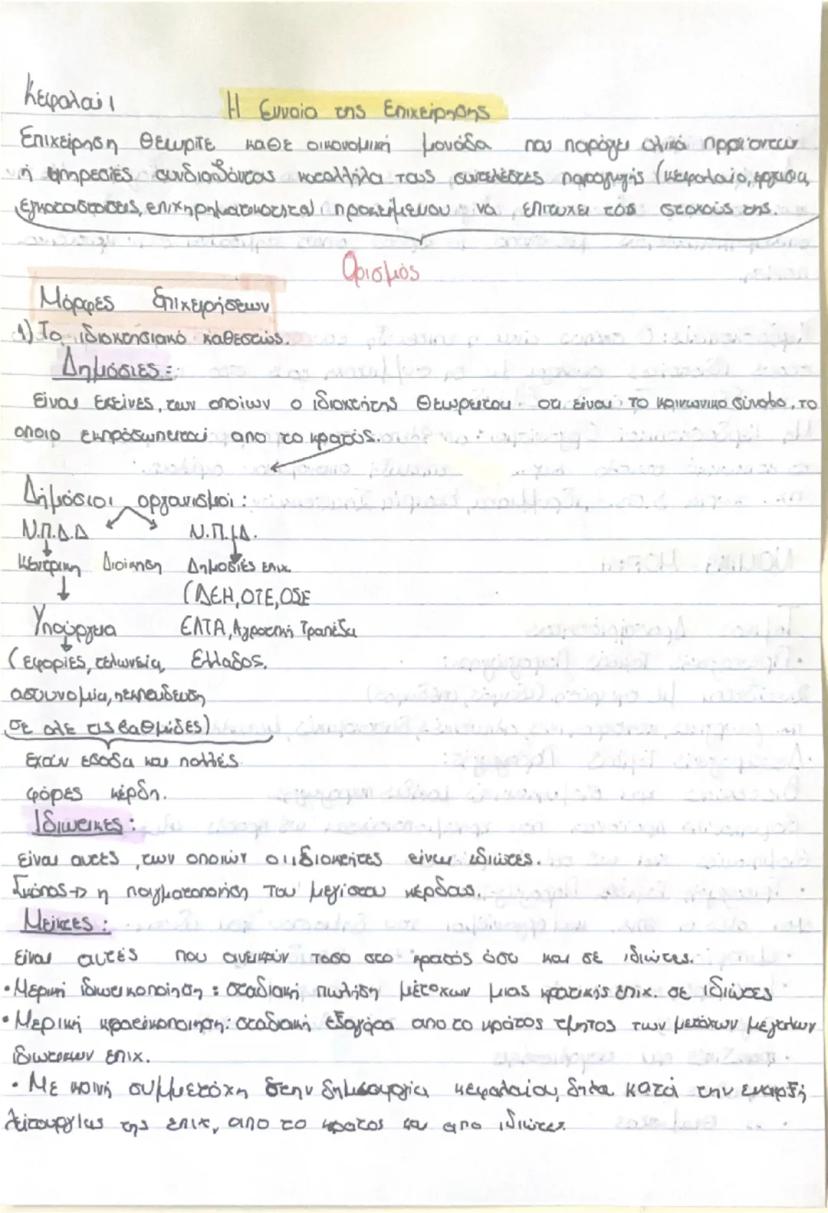 Κεφαλαί 1
Η Εννοία της Επιχείρησης
Επιχείρηση Θεωρίτε κάθε οικονομική μονάδα που παράγει υλικά προϊοντων
ή υπηρεσίες συνδιαθόντας καταλλήλα τους συντελέστες παραγωγής (κεφαλαίο, εργασία,
εγκαταστάσεις, επιχηρηματικοτητα) προκειμένου να επιτύχει τόυς στοχούς της.
Ορισμός
Μόρφες Επιχειρήσεων
1) Το ιδιοκτησιακό καθεστώς.
Δημόσιες:
είναι εκείνες, των οποίων ο ιδιοκτήτης Θεωρείται οτι είναι το κοινωνικό σύνολο, το
οποιο εκπρόσωπειται απο το κρατός.
Δημόσιοι οργανισμοί:
Ν.Π.Δ.Δ Ν.Π.Ι.Δ.
Κεντρικη Διοίκηση Δημοσιές επιχ.
(ΔΕΗ, ΟΤΕ, ΟΣΕ
Υπούργεια ΕΛΤΑ, Αγροτική Τραπέζα
(εφορίες, τελωνεία, Ελλαδος.
αστυνομία, εκπαίδευση
σε ολε τις βαθμίδες)
εχουν εσοδα και πολλές
φόρες κέρδη.
Ιδιωτικες:
είναι αυτές, των οποιών οι ιδιοκτήτες είναι ιδιώτες.
Σκόπος → η πραγματοποιηση του μεγίστου κέρδους.
Μεικτες:
είναι αυτές που ανεικούν τόσο στο κρατός όσο και σε ιδιώτες.
• Μερική ιδιωτικοποίηση: σταδιακή πωλήση μέτοχων μιας κρατικής επιχ. σε ιδιώτες
• Μερική κρατικοποιηση: σταδιακή εξαγόρα απο το κράτος τμητος των μετόχων μεγάλων
ιδιωτικων επιχ.
• Με κοινή συμμετόχη στην δημιουργία κεφαλαίου, δηλα κατά την εναρξή
λειτουργίας της επιχ, απο το κρατος και απο ιδιώτες.